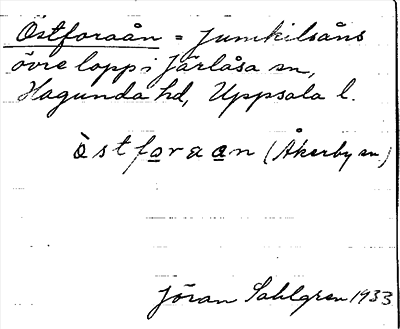 Östforaån = Jumkilsåns
övre lopp i Järlåsa sn,
Hagunda hd, Uppsala l.
òstforaan (Åkerby sn.)
Jöran Sahlgren 1933